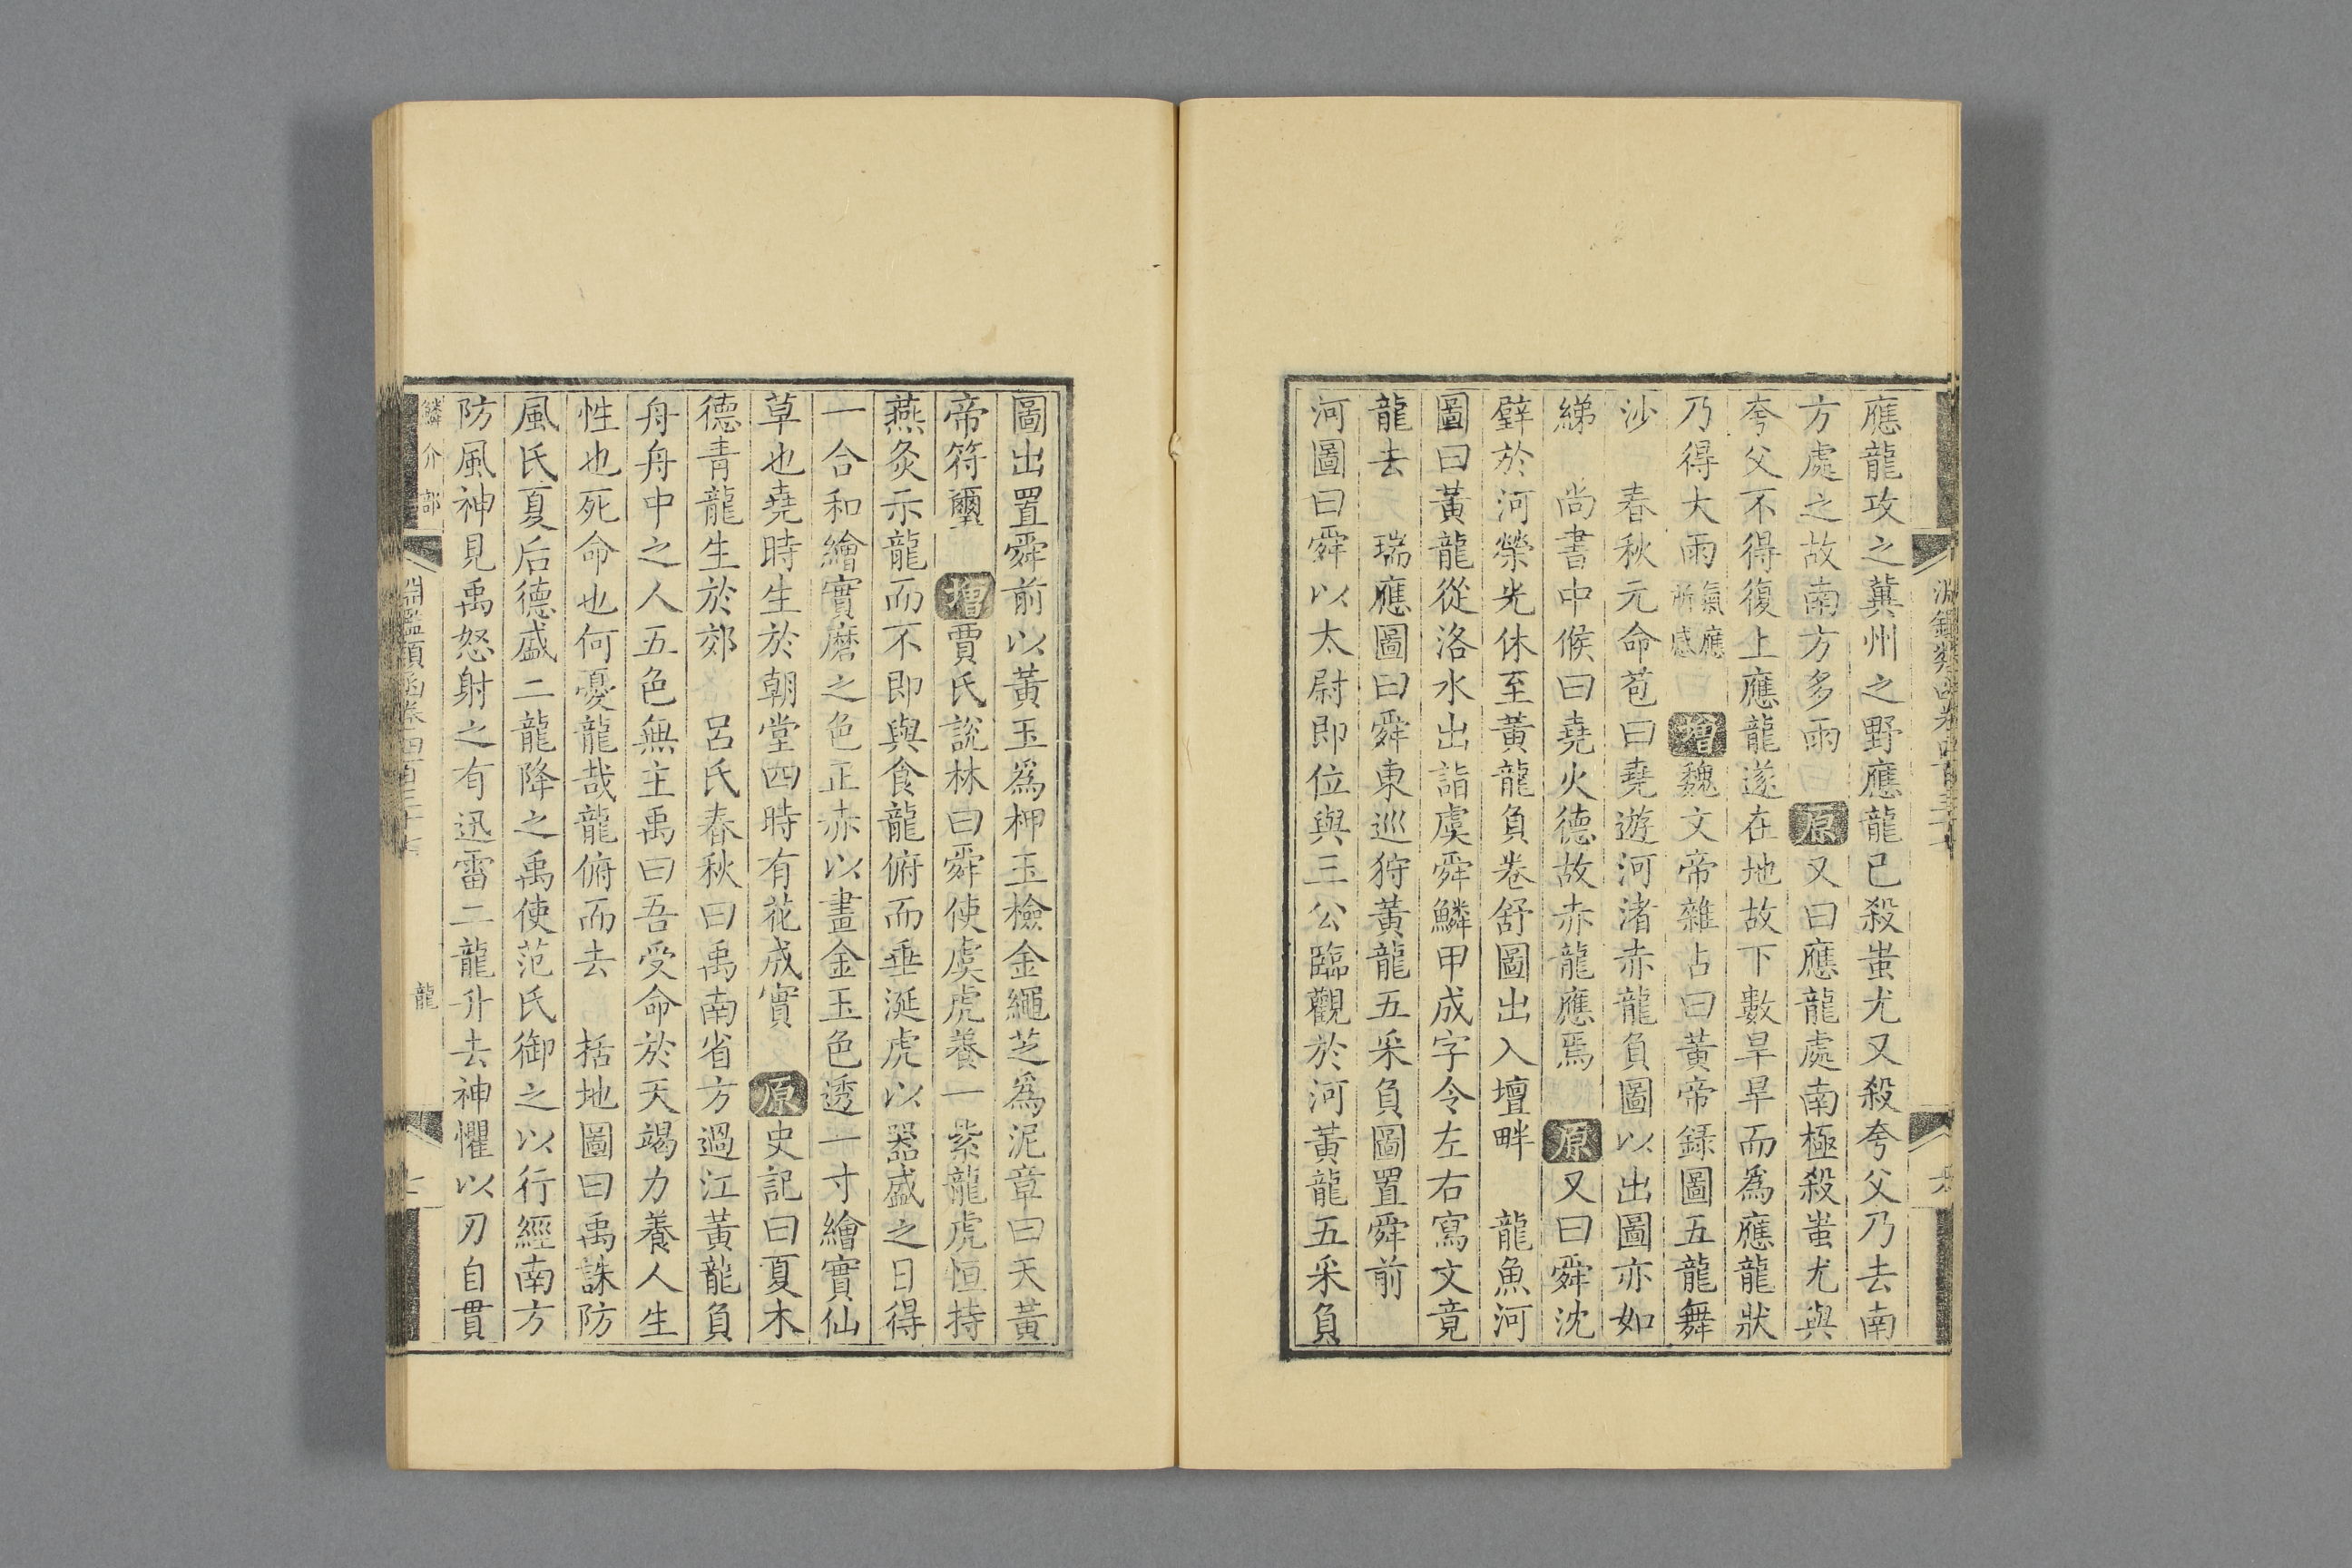 應龍攻之蓂州之野應龍已殺蚩尤又殺夸父乃去南
方處之故南方多雨 原又曰應龍處南極殺蚩尤與
夸父不得復上應龍遂在地故下數旱旱而為應龍狀
乃得大雨氣應所感 增魏文帝雜占曰黃帝録圖五龍舞
沙 春秋元命苞曰堯遊河渚赤龍負圖以出圖亦如
綈 尚書中候曰堯火德故赤龍應焉 原又曰舜沈
璧於河榮光休至黃龍負卷舒圖出入壇畔 龍魚河
圖曰黃龍從洛水出詣虞舜鱗甲成字令左右寫文竟
龍去 瑞應圖曰舜東巡狩黃龍五采負圖置舜前
河圖曰舜以太尉即位與三公臨觀於河黃龍五采負
圖出置舜前以黃玉為柙玉檢金繩芝為泥章曰天黃
帝符璽 增賈氏說林曰舜使虞虎養一紫龍虎恒持
燕炙示龍而不即與食龍俯而垂涎虎以器盛之日得
一合和繪實磨之色正赤以畫金玉色透一寸繪實仙
草也堯時生於朝堂四時有花成實 原史記曰夏木
德青龍生於郊 呂氏春秋曰禹南省方過江黃龍負
舟舟中之人五色無主禹曰吾受命於天竭力養人生
性也死命也何憂龍哉龍俯而去 括地圖曰禹誅防
風氏夏后德盛二龍降之禹使范氏御之以行經南方
防風神見禹怒射之有迅雷二龍升去神懼以刃自貫
鱗介部 淵鑑類函卷四百三十七 龍